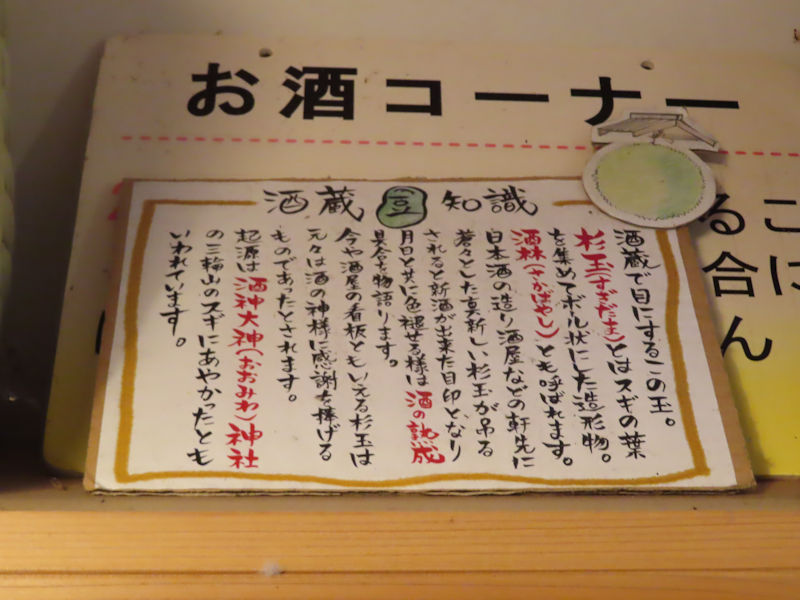 お酒コーナー
酒蔵豆知識
酒蔵で目にするこの玉。
杉玉(すぎだま)とはスギの葉
を集めてボール状にした造形物。
酒林(さかばやし)とも呼ばれます。
日本酒の造り酒屋などの軒先に
蒼々とした真新しい杉玉が吊る
されると新酒が出来た目印となり
月日と共に色褪せる様は酒の熟成
具合を物語ります。
今や酒屋の看板ともいえる杉玉は
元々は酒の神様に感謝を捧げる
ものであったとされます。
起源は酒神大神(おおみわ)神社
の三輪山のスギにあやかったとも
いわれています。
こに
る合ん